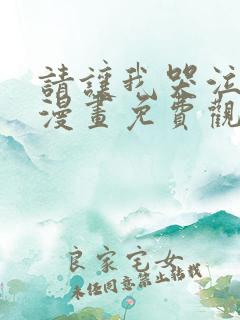 請讓我哭泣
漫畫免費觀
良家宅女
未經同意禁止轉載